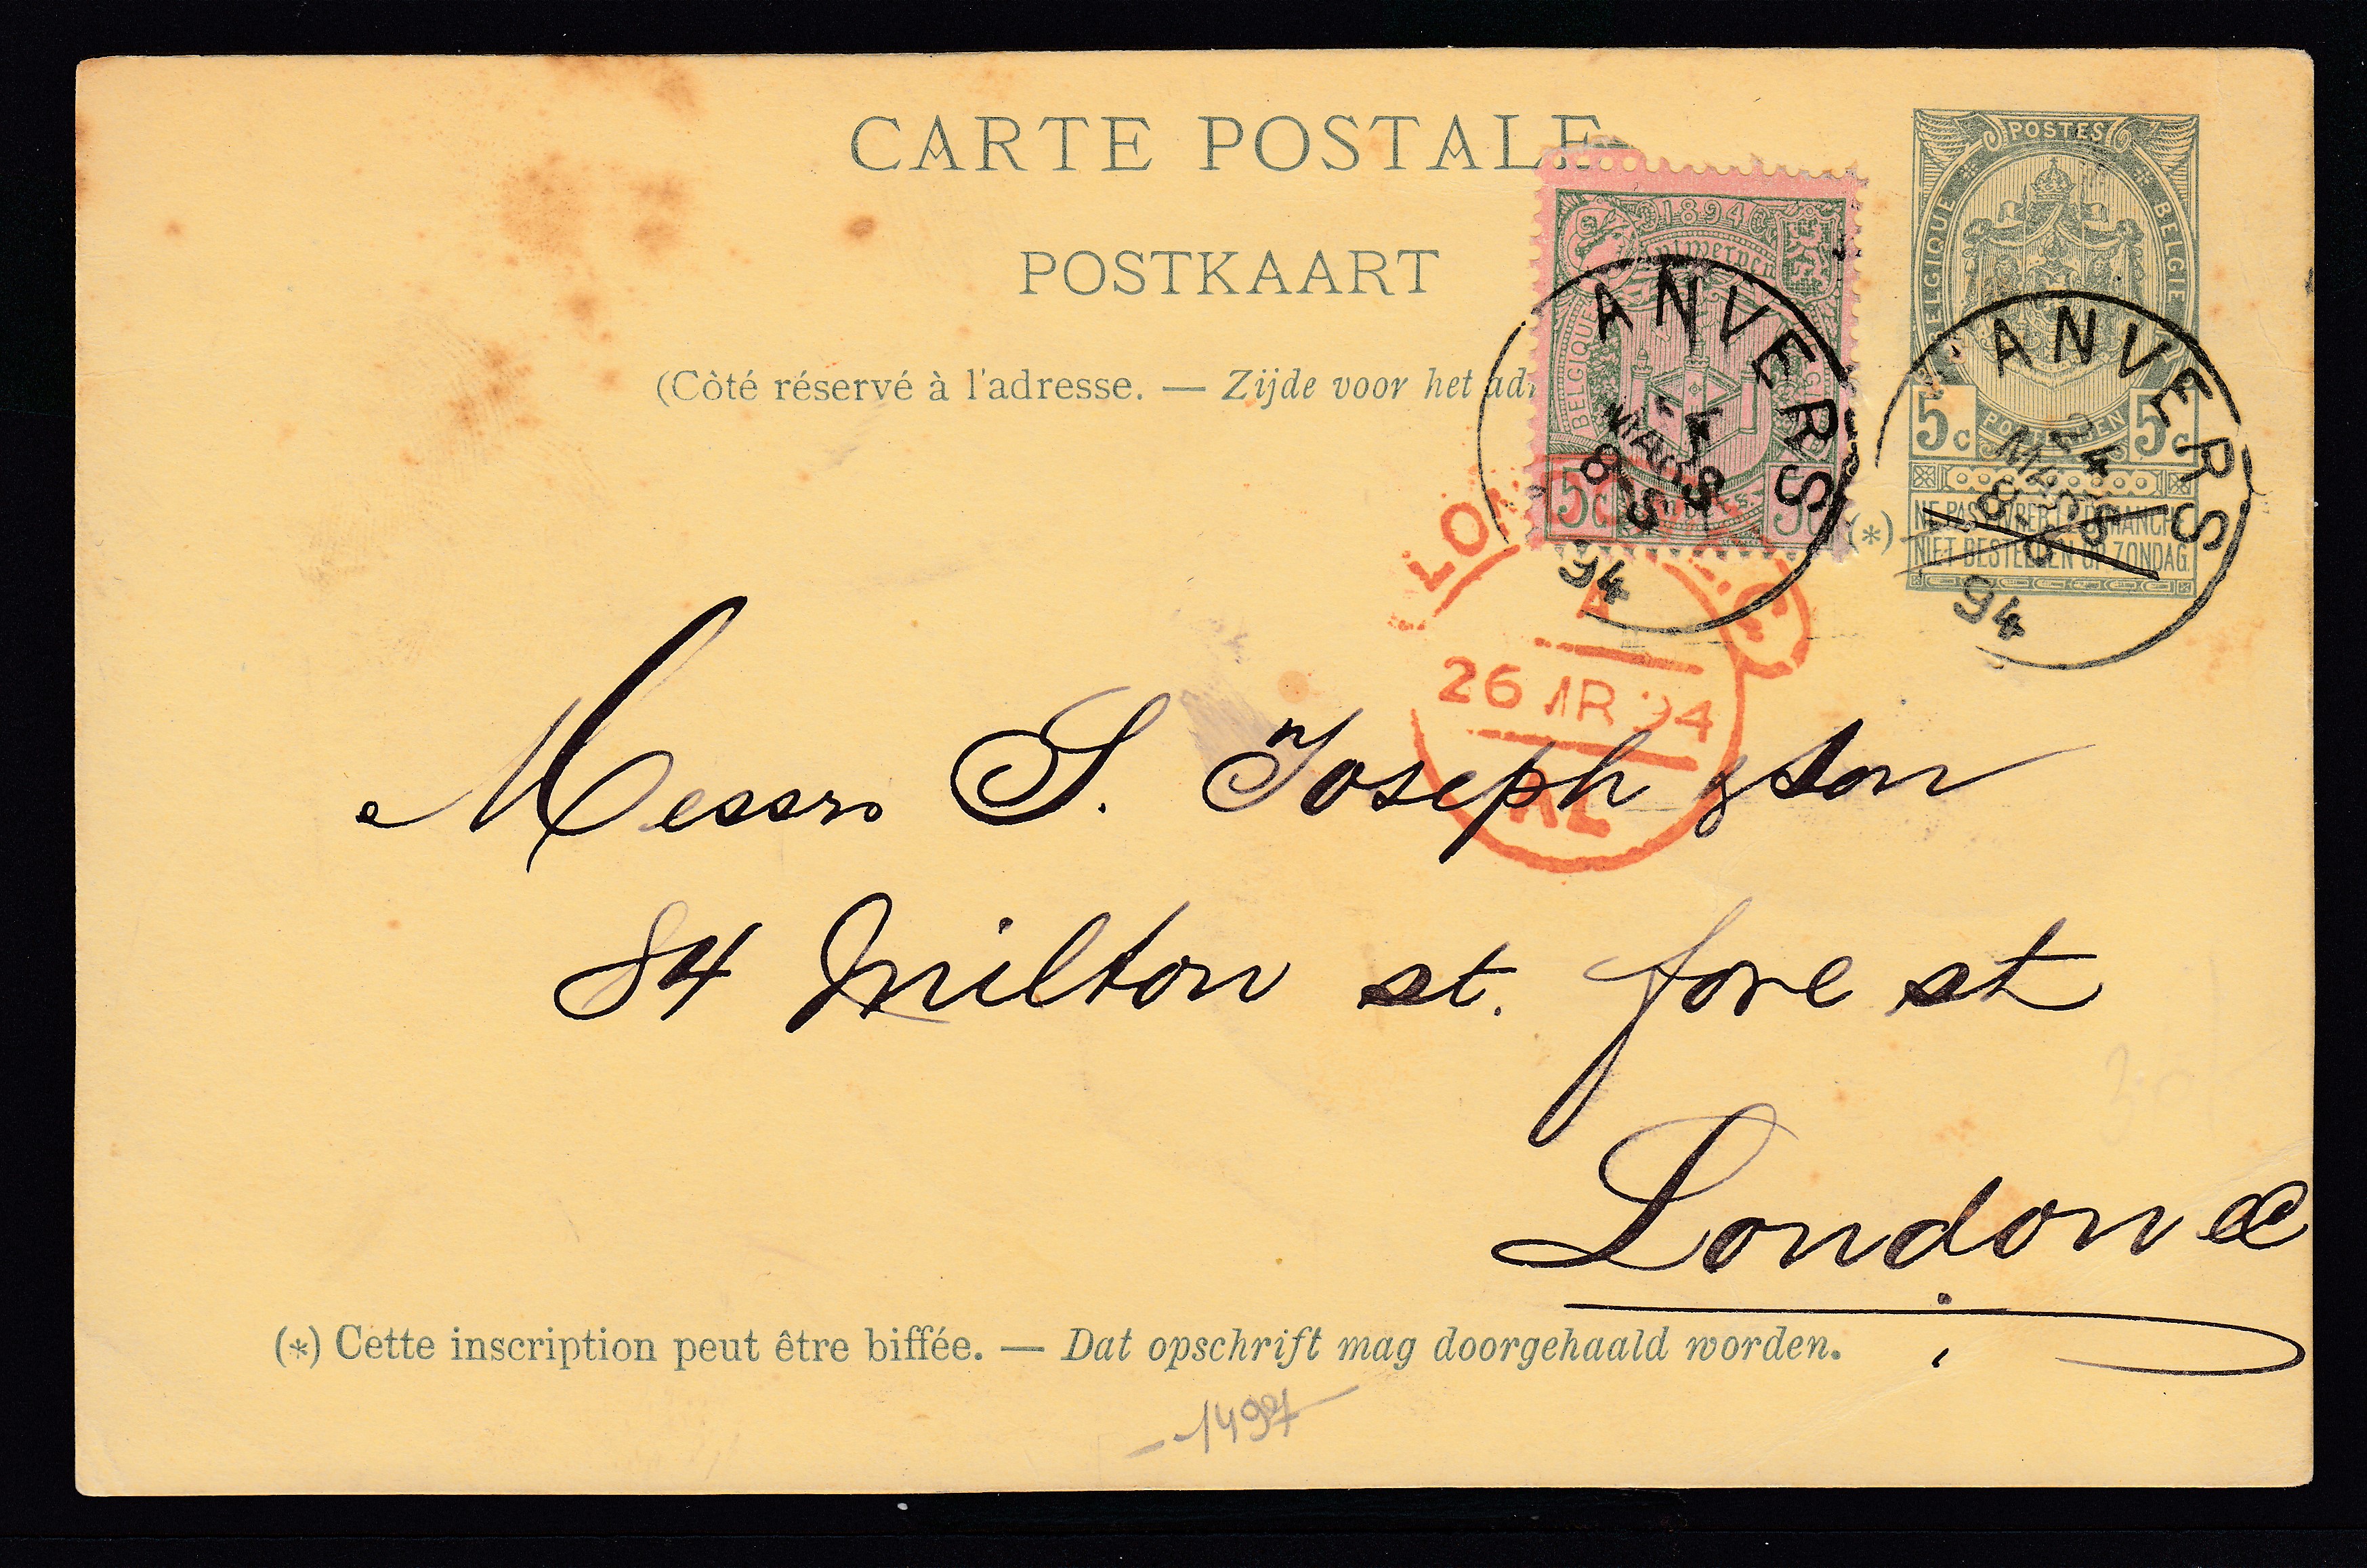 CARTE POSTALE
POSTKAART
(Côté réservé à l'adresse. — Zijde voor het
POSTES
BELGIQUE BELGIE
5c POSTERIJEN 5c
(*) NE PAS LIVRER LE DIMANCHE
NIET BESTELLEN OP ZONDAG.
1894
Antwerpen
BELGIQUE
5c 5c
ANVERS
24
MARS
8-S
94
ANVERS
24
MARS
8-S
94
26 MR 94
Messrs S. Joseph & Son
84 Milton st. fore st
London EC
(*) Cette inscription peut être biffée. — Dat opschrift mag doorgehaald worden.